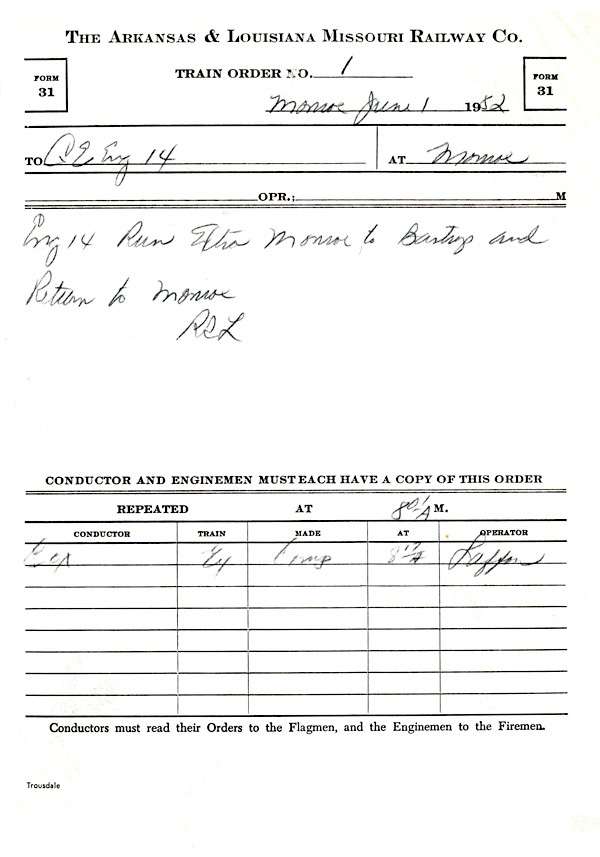 THE ARKANSAS & LOUISIANA MISSOURI RAILWAY CO.
FORM 31
TRAIN ORDER NO. 1
FORM 31
Monroe June 1 1952
TO C & E Eng 14 AT Monroe
OPR.; M
Eng 14 Run Extra Monroe to Bastrop and
Return to Monroe
RSL
CONDUCTOR AND ENGINEMEN MUST EACH HAVE A COPY OF THIS ORDER
REPEATED AT 801 A M.
CONDUCTOR TRAIN MADE AT OPERATOR
Ex Comp
Conductors must read their Orders to the Flagmen, and the Enginemen to the Firemen.
Trousdale